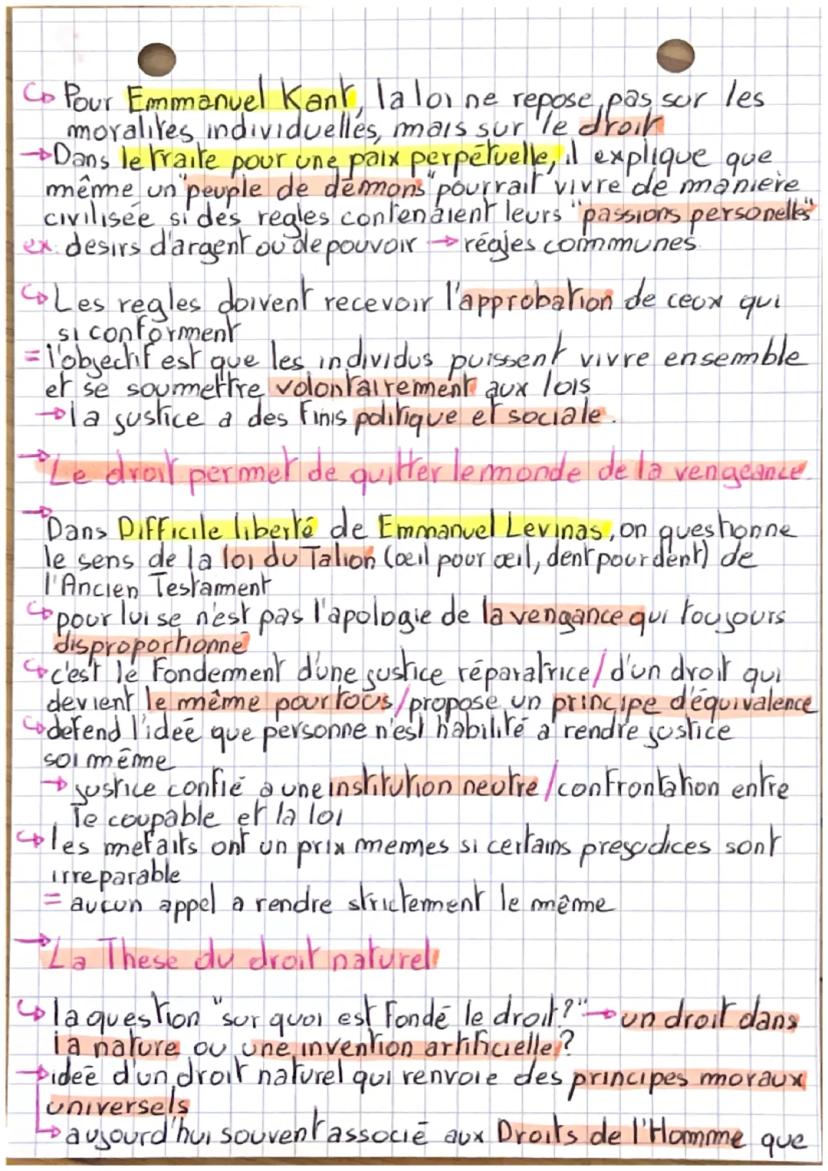 ↳ Pour Emmanuel Kant, la loi ne repose pas sur les
moralités individuelles, mais sur le droit
→ Dans le traite pour une paix perpétuelle, il explique que
même un "peuple de démons" pourrait vivre de manière
civilisée si des regles contenaient leurs "passions personelles"
ex: desirs d'argent ou de pouvoir → régles communes
↳ Les regles doivent recevoir l'approbation de ceux qui
si conforment
= l'objectif est que les individus puissent vivre ensemble
et se soumettre volontairement aux lois
→ la justice a des finis politique et sociale.
→ Le droit permet de quitter le monde de la vengeance
→ Dans Difficile liberté de Emmanuel Levinas, on questionne
le sens de la loi du Talion (œil pour œil, dent pour dent) de
l'Ancien Testament
↳ pour lui se n'est pas l'apologie de la vengance qui toujours
disproportionné
↳ c'est le fondement d'une justice réparatrice / d'un droit qui
devient le même pour tous / propose un principe d'équivalence
↳ defend l'ideé que personne n'est habilité a rendre justice
soi même
→ justice confié a une institution neutre / confrontation entre
le coupable et la loi
↳ les mefaits ont un prix memes si certains prejudices sont
irreparable
= aucun appel a rendre strictement le même
→ La These du droit naturel
↳ la question "sur quoi est fondé le droit?" → un droit dans
la nature ou une invention artificielle?
→ ideé d'un droit naturel qui renvoie des principes moraux
universels
↳ aujourd'hui souvent associé aux Droits de l'Homme que